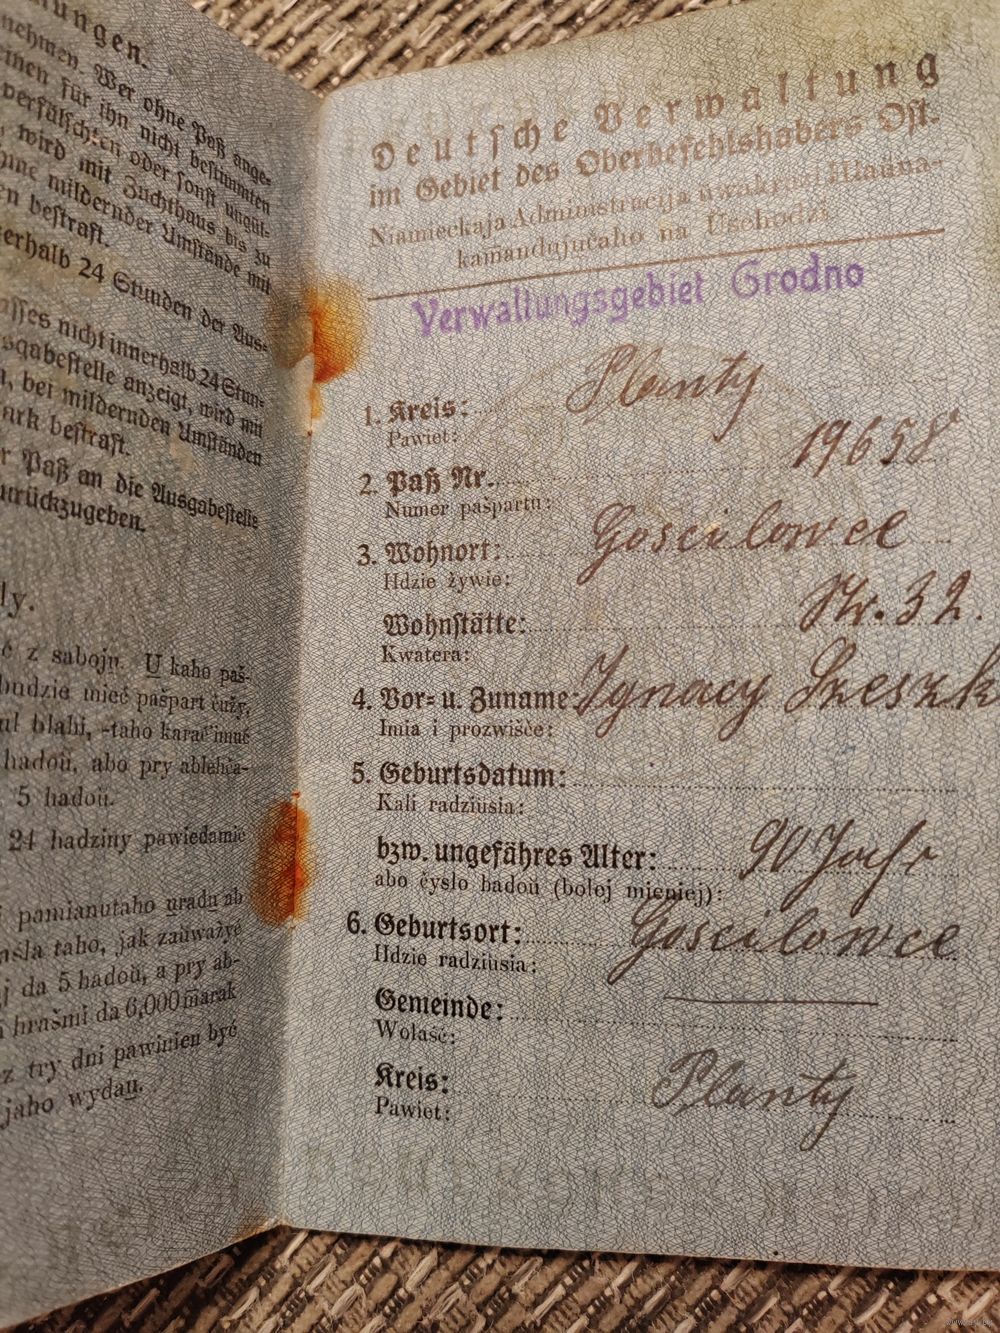 ungen.
nehmen. Wer ohne Paß ange-
men für ihn nicht bestimmten
verfälschten oder sonst ungül-
wird mit Zuchthaus bis zu
mildernder Umstände mit
bestraft.
erhalb 24 Stunden der Aus-
nicht innerhalb 24 Stun-
anzeigt, wird mit
bei mildernden Umständen
bestraft.
Paß an die Ausgabestelle
zurückzugeben.
ly.
z saboju. U kaho paš-
budzie mieć pašpart čužy,
blahi, -taho karać'imuć
hadoŭ, abo pry ablehča-
5 hadoŭ.
24 hadziny pawiedamie
pamianutaho uradu ab
taho, jak zaŭważyć
da 5 hadoŭ, a pry ab-
hrašmi da 6,000 marak
try dni pawinien być
jaho wydaŭ.
Deutsche Verwaltung
im Gebiet des Oberbefehlshabers Ost.
Niamieckaja Administracija ŭ wakruzi Hłaŭna-
kamandujučaho na Uschodzi
Verwaltungsgebiet Grodno
1. Kreis: Planty
Pawiet:
2. Paß Nr. 19658
Numer pašpartu:
3. Wohnort: Goscilowce
Hdzie żywie:
Wohnstätte: Nr. 32.
Kwatera:
4. Vor= u. Zuname: Ignacy Szeszk
Imia i prozwišče:
5. Geburtsdatum:
Kali radziŭsia:
bzw. ungefähres Alter: 90 Jahr
abo čysło hadoŭ (bolej mieniej):
6. Geburtsort: Goscilowce
Hdzie radziŭsia:
Gemeinde:
Wołaść:
Kreis: Planty
Pawiet: